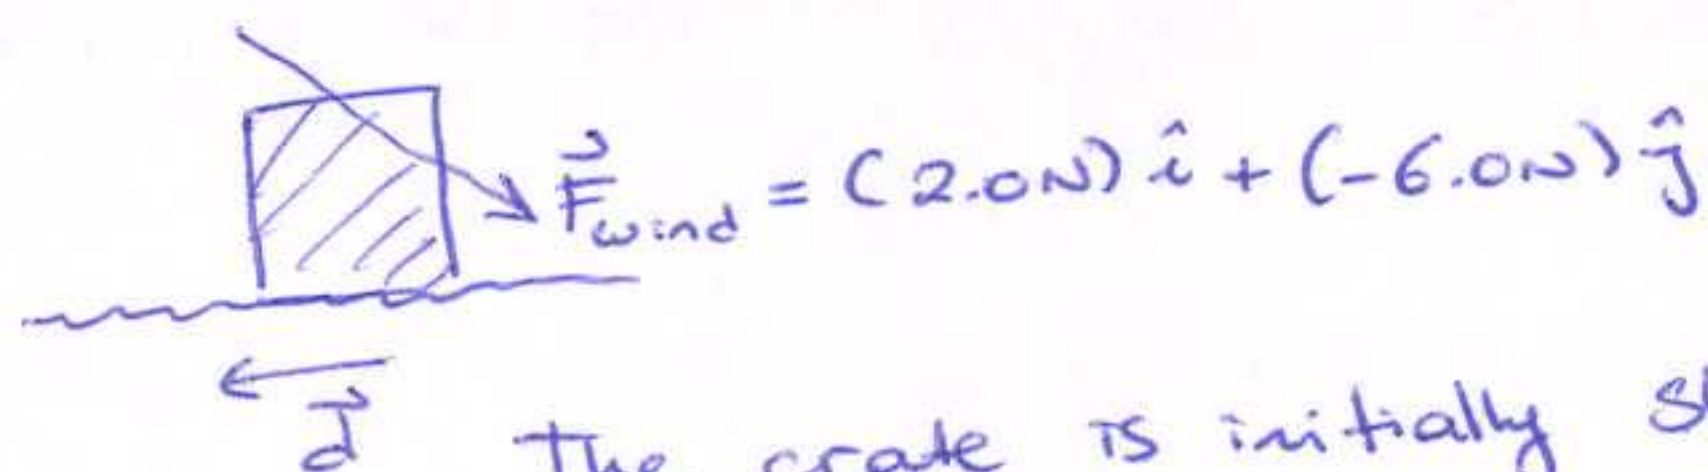 F⃗wind = (2.0N) î + (-6.0N) ĵ
d⃗
The crate is initially